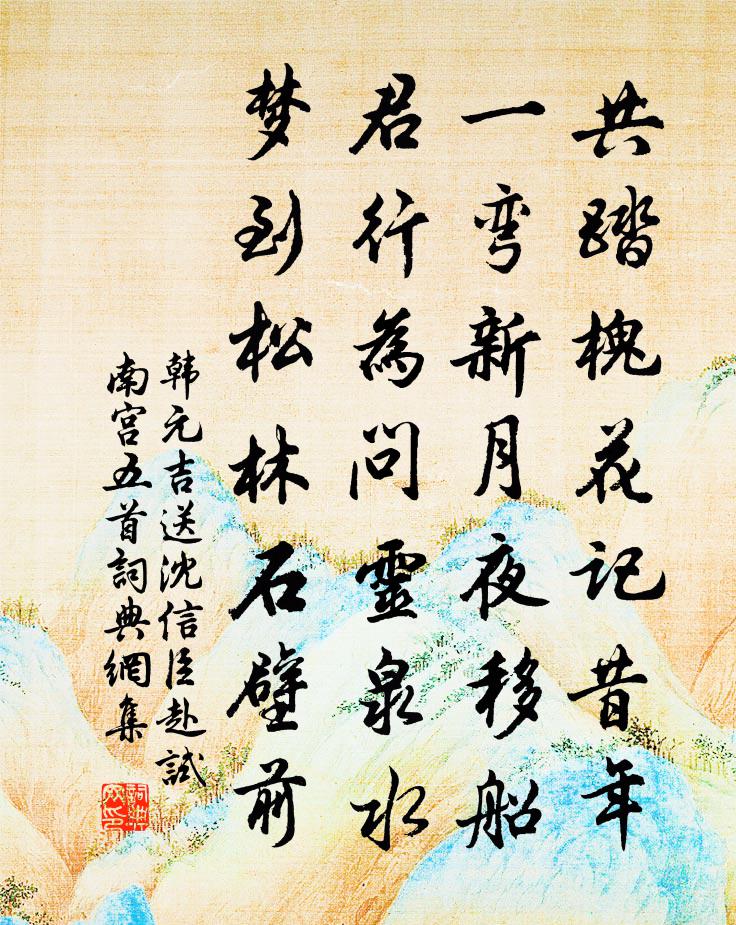 共踏槐花记昔年
一弯新月夜移船
君行為问靈泉水
梦到松林石壁前
韩元吉送沈信臣赴試
南宫五首詞典網集